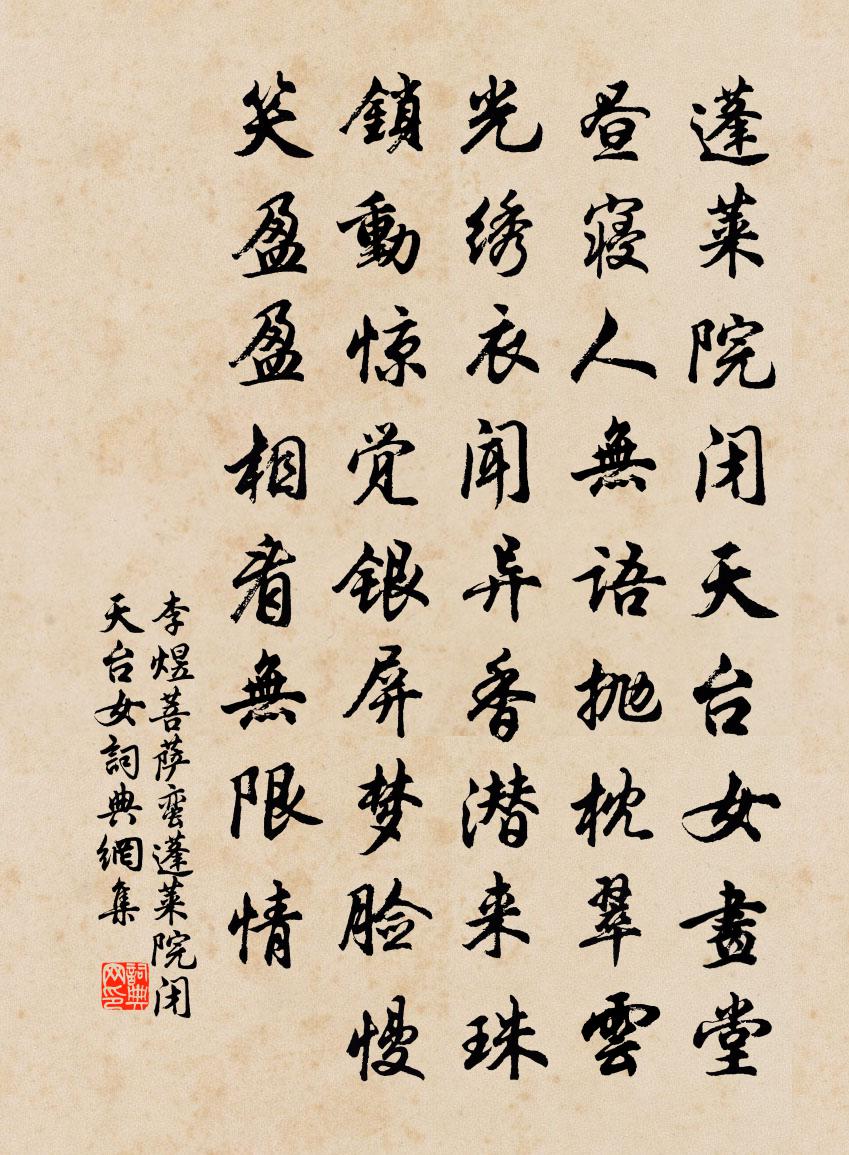 蓬莱院闭天台女畫堂
昼寝人無語抛枕翠雲
光绣衣闻异香潜来珠
鎖動惊觉银屏梦脸慢
笑盈盈相看無限情
李煜菩萨蛮蓬莱院闭
天台女詞典網集
詞典网印